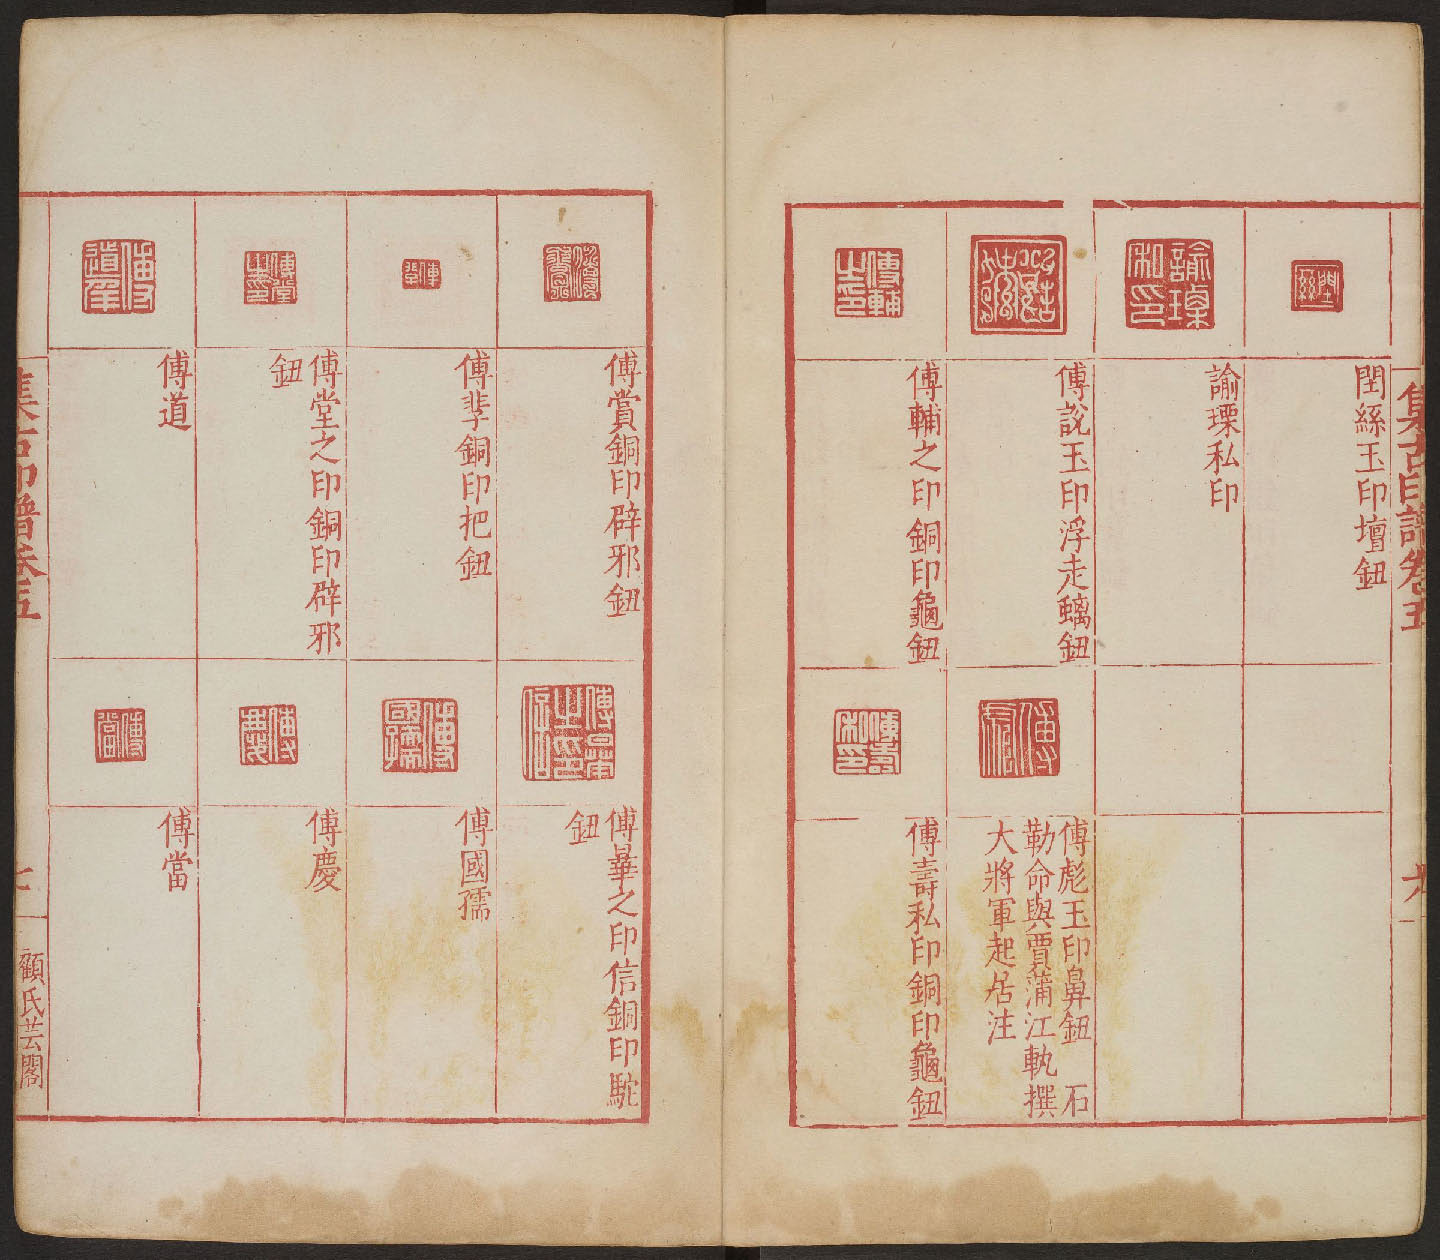 集古印譜卷五
六
𡉏絲玉印壇鈕
諭㻎私印
傅說玉印浮走螭鈕
傅輔之印銅印龜鈕
傅彪玉印鼻鈕 石
勒命與賈蒲江軌撰
大將軍起居注
傅壽私印銅印龜鈕
傅賞銅印辟邪鈕
傅孯銅印把鈕
傅堂之印銅印辟邪
鈕
傅道
傅㬸之印信銅印駝
鈕
傅國孺
傅慶
傅當
集古印譜卷五
七
顧氏芸閣